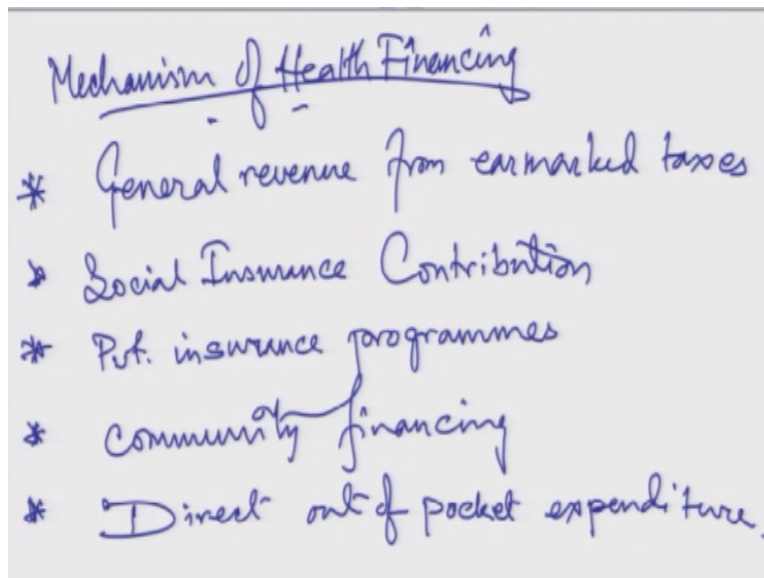 Mechanism of Health Financing
* General revenue from earmarked taxes
* Social Insurance Contribution
* Pvt. insurance programmes
* Community financing
* Direct out of pocket expenditure.